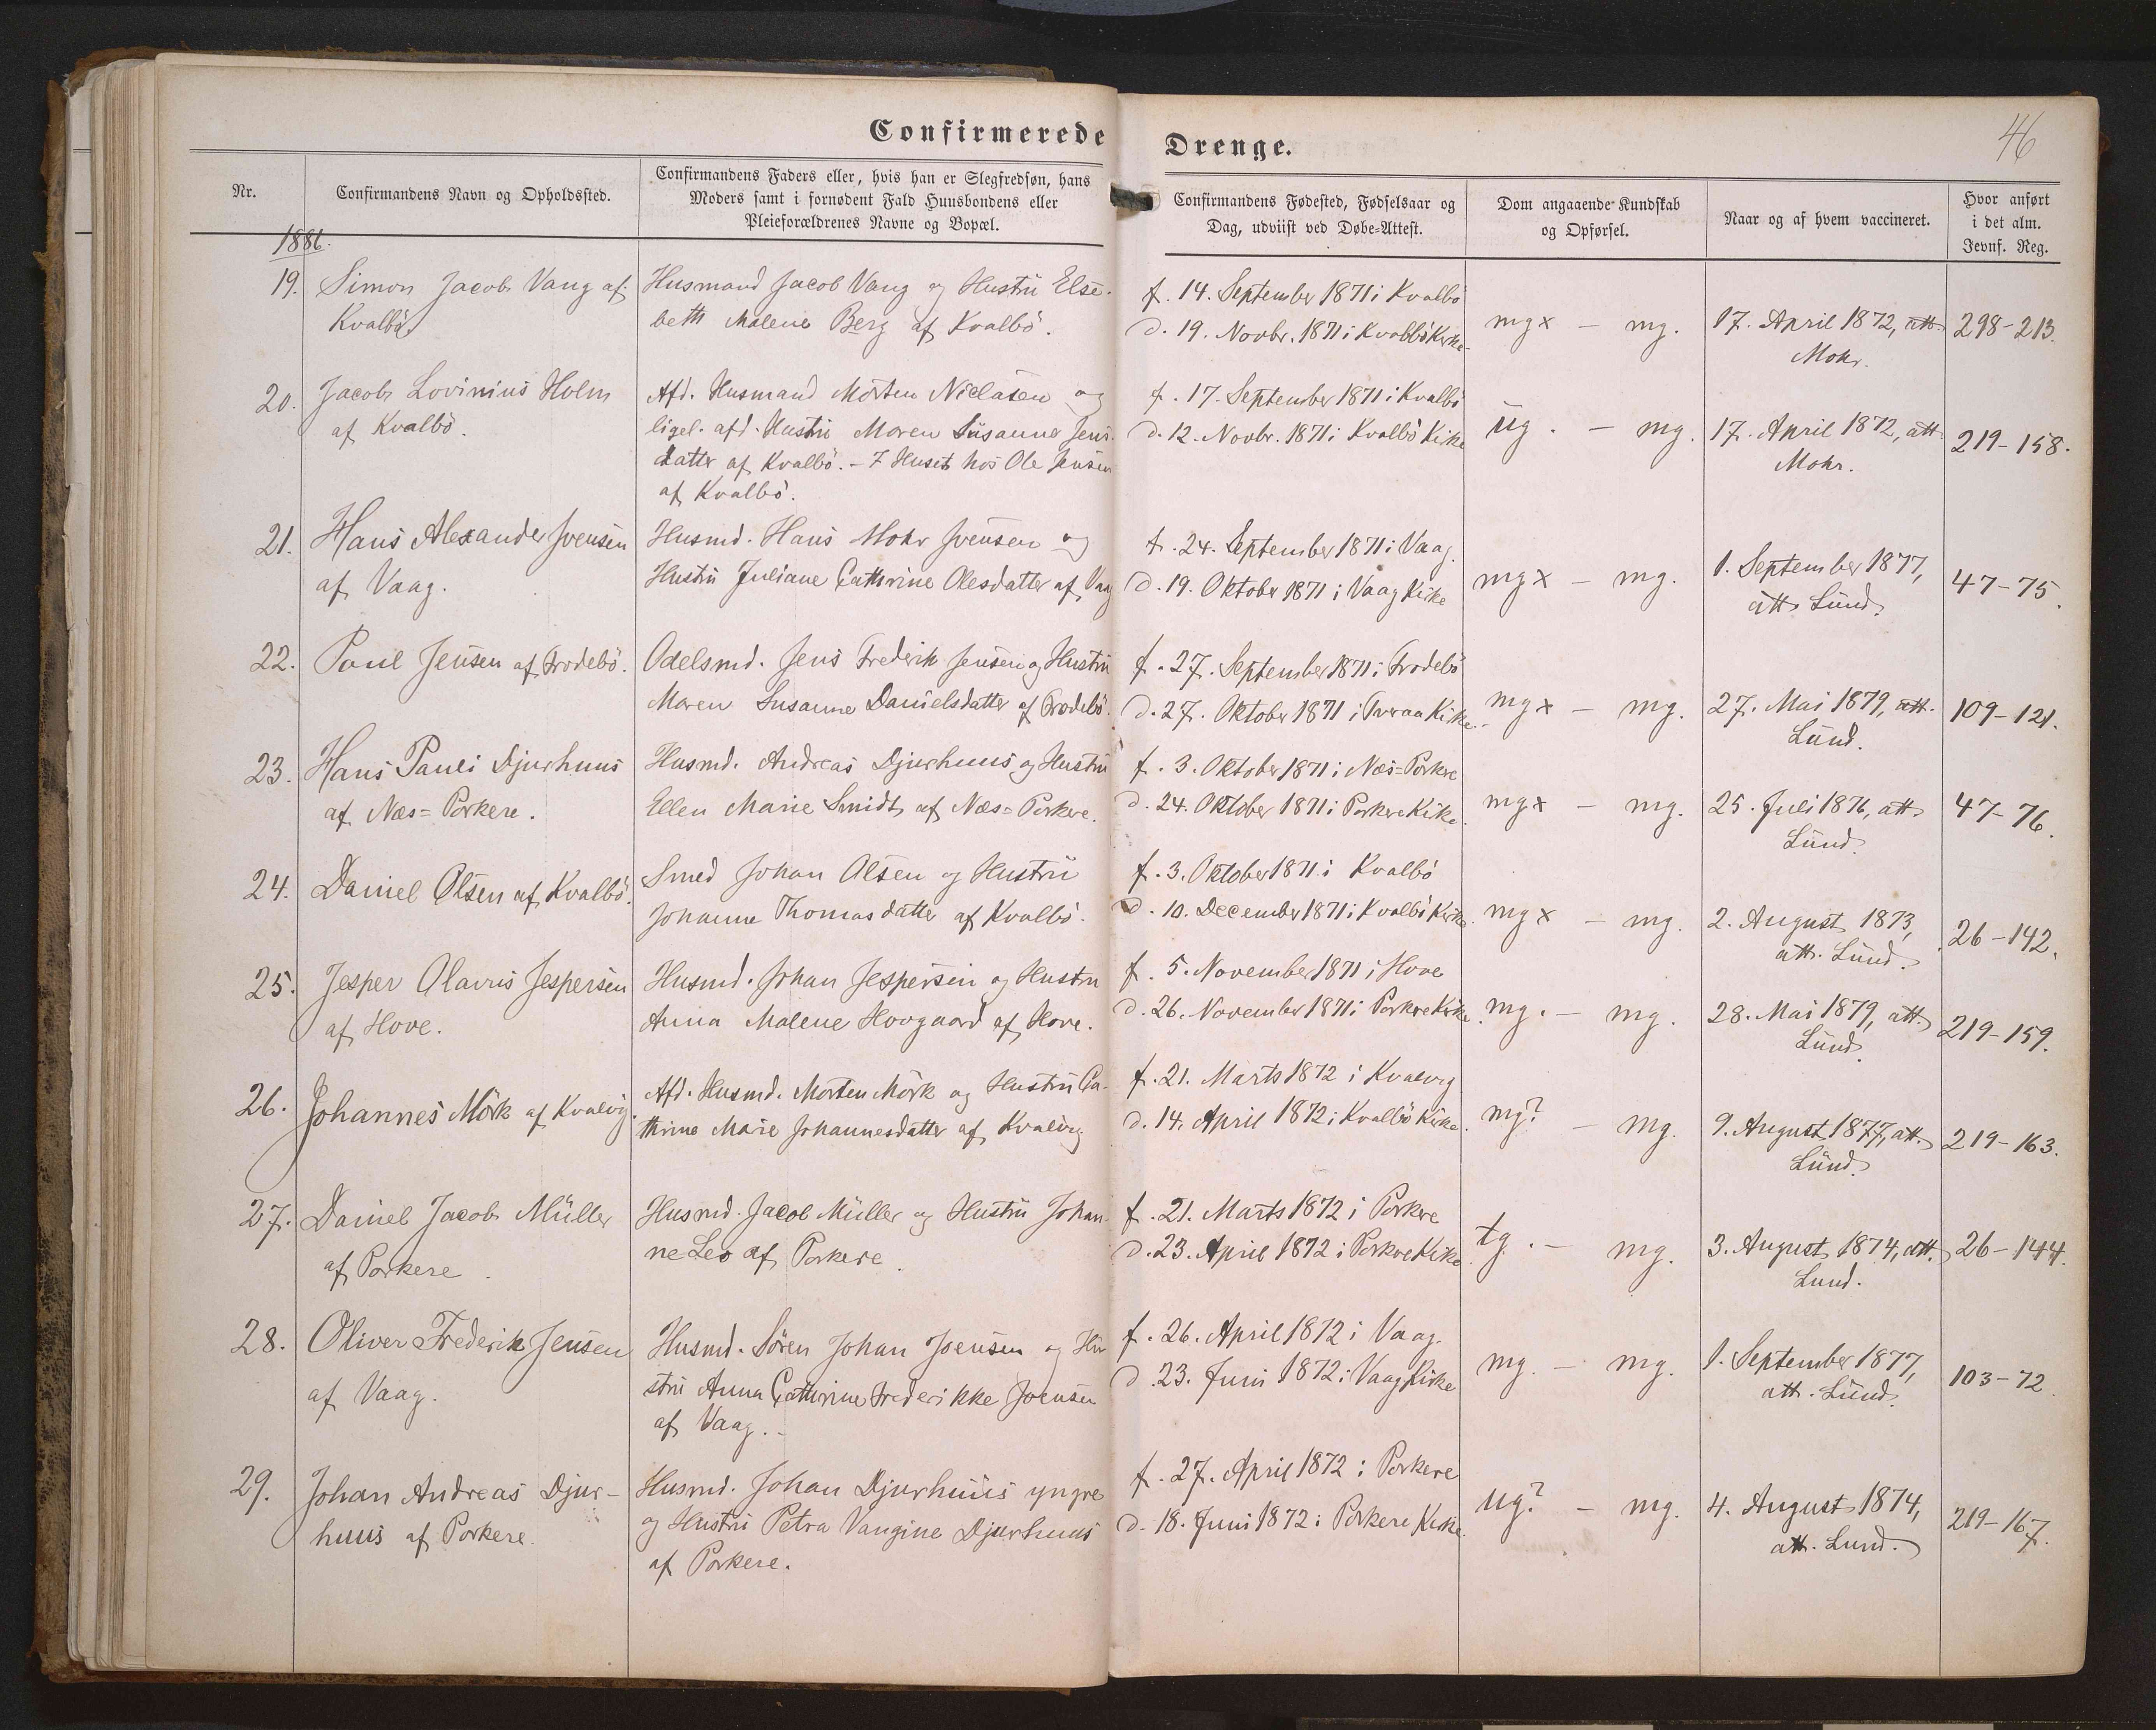 Confirmerede Drenge.
46
Nr.
Confirmandens Navn og Opholdssted.
Confirmandens Faders eller, hvis han er Slegfredsøn, hans
Moders samt i fornødent Fald Huusbondens eller
Pleieforældrenes Navne og Bopæl.
Confirmandens Fødested, Fødselsaar og
Dag, udviist ved Døbe-Attest.
Dom angaaende Kundskab
og Opførsel.
Naar og af hvem vaccineret.
Hvor anført
i det alm.
Jevnf. Reg.
1886.
19.
Simon Jacob Vang af
Kvalbö.
Husmand Jacob Vang og Hustru Else-
beth Malene Berg af Kvalbö.
f. 14. September 1871 i Kvalbö
d. 19. Novbr. 1871 i Kvalbö Kirke
mgx - mg.
17. April 1872, att.
Mohr.
298-213.
20.
Jacob Lovinius Holm
af Kvalbö.
Afd. Husmand Morten Niclasen og
ligel. afd. Hustru Maren Susanne Jens-
datter af Kvalbö. - 7 Huset hos Ole Jensen
af Kvalbö.
f. 17. September 1871 i Kvalbö
d. 12. Novbr. 1871 i Kvalbö Kirke
ug. - mg.
17. April 1872, att
Mohr.
219-158.
21.
Hans Alexander Joensen
af Vaag.
Husmd. Hans Mohr Joensen og
Hustru Juliane Cathrine Olesdatter af Vaag
f. 24. September 1871 i Vaag.
d. 19. Oktober 1871 i Vaag Kirke
mgx - mg.
1. September 1877,
att. Lund.
47-75.
22.
Poul Jensen af Frodebö.
Odelsmd. Jens Frederik Jensen og Hustru
Maren Susanne Danielsdatter af Frodebö.
f. 27. September 1871 i Frodebö
d. 27. Oktober 1871 i Tveraa Kirke.
mgx - mg.
27. Mai 1879, att.
Lund.
109-121.
23.
Hans Pauli Djurhuus
af Næs=Porkere.
Husmd. Andreas Djurhuus og Hustru
Ellen Marie Smidt af Næs=Porkere.
f. 3. Oktober 1871 i Næs=Porkere
d. 24. Oktober 1871 i Porkere Kirke.
mgx - mg.
25. Juli 1876, att.
Lund.
47-76.
24.
Daniel Olsen af Kvalbö.
Smed Johan Olsen og Hustru
Johanne Thomasdatter af Kvalbö.
f. 3. Oktober 1871 i Kvalbö
d. 10. December 1871 i Kvalbö Kirke.
mgx - mg.
2. August 1873,
att. Lund.
26-142.
25.
Jesper Olavus Jespersen
af Hove.
Husmd. Johan Jespersen og Hustru
Anna Malene Hovgaard af Hove.
f. 5. November 1871 i Hove
d. 26. November 1871 i Porkere Kirke.
mg. - mg.
28. Mai 1879, att.
Lund.
219-159.
26.
Johannes Mörk af Kvalvig.
Afd. Husmd. Morten Mörk og Hustru Ca-
thrine Marie Johannesdatter af Kvalvig
f. 21. Marts 1872 i Kvalvig
d. 14. April 1872 i Kvalbö Kirke.
mg? - mg.
9. August 1877, att.
Lund.
219-163.
27.
Daniel Jacob Müller
af Porkere.
Husmd. Jacob Müller og Hustru Johan-
ne Leo af Porkere.
f. 21. Marts 1872 i Porkere
d. 23. April 1872 i Porkere Kirke
tg. - mg.
3. August 1874, att.
Lund.
26-144.
28.
Oliver Frederik Jensen
af Vaag.
Husmd. Sören Johan Joensen og Hu-
stru Anna Cathrine Frederikke Joensen
af Vaag.
f. 26. April 1872 i Vaag.
d. 23. Juni 1872 i Vaag Kirke
mg - mg.
1. September 1877,
att. Lund.
103-72.
29.
Johan Andreas Djur-
huus af Porkere.
Husmd. Johan Djurhuus yngre
og Hustru Petra Vangine Djurhuus
af Porkere.
f. 27. April 1872 i Porkere
d. 18. Juni 1872 i Porkere Kirke.
ug? - mg.
4. August 1874,
att. Lund.
219-167.